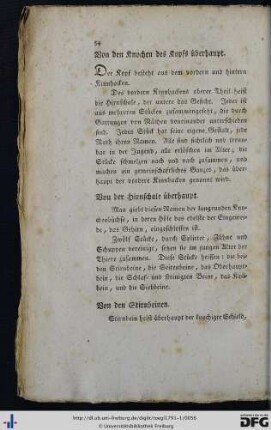 54
Von den Knochen des Kopfs überhaupt.
Der Kopf besteht aus dem vordern und hintern
Kinnbacken.
Des vordern Kinnbackens oberer Theil heist
die Hirnschale, der untere das Gesicht. Jeder ist
aus mehreren Stücken zusammengesetzt, die durch
Gattungen von Näthen voneinander unterschieden
sind. Jedes Stück hat seine eigene Gestalt, jede
Nath ihren Namen. Alle sind sichtbar und trenn-
bar in der Jugend, alle erlöschen im Alter; die
Stücke schmelzen nach und nach zusammen, und
machen ein gemeinschaftliches Ganzes, das über-
haupt der vordere Kinnbacken genannt wird.
Von der Hirnschale überhaupt.
Man giebt diesen Namen der langrunden Kno-
chenbüchse, in deren Höle das edelste der Eingewei-
de, das Gehirn, eingeschlossen ist.
Zwölf Stücke, durch Splitter, Zähne und
Schuppen vereinigt, sehen sie im jungen Alter der
Thiere zusammen. Diese Stücke heissen: die bei-
den Stirnbeine, die Seitenbeine, das Oberhaupt-
bein, die Schlaf- und steinigten Beine, das Keil-
bein, und die Siebbeine.
Von den Stirnbeinen.
Stirnbein heist überhaupt der knochigte Schild,
http://dl.ub.uni-freiburg.de/diglit/weg1793-1/0056
© Universitätsbibliothek Freiburg
gefördert durch
DFG